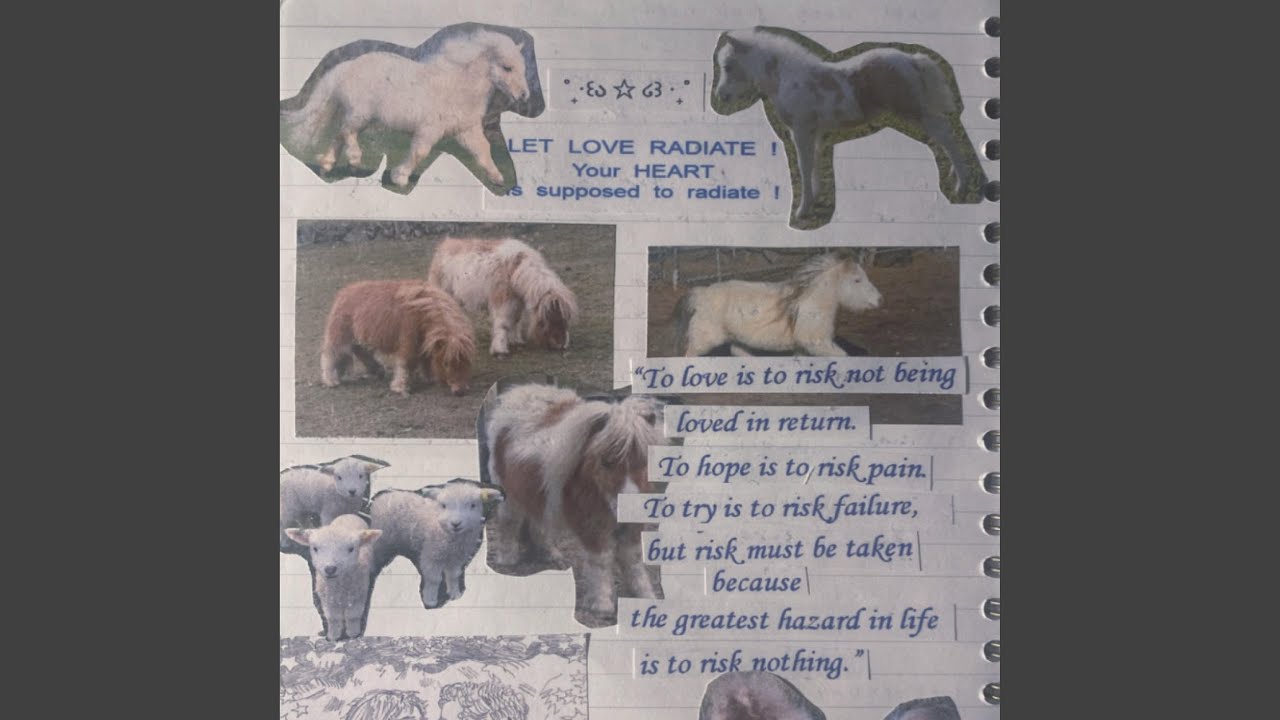 ˚₊‧꒰ა ☆ ໒꒱ ‧₊˚
LET LOVE RADIATE !
Your HEART
is supposed to radiate !
“To love is to risk not being
loved in return.
To hope is to risk pain.
To try is to risk failure,
but risk must be taken
because
the greatest hazard in life
is to risk nothing.”